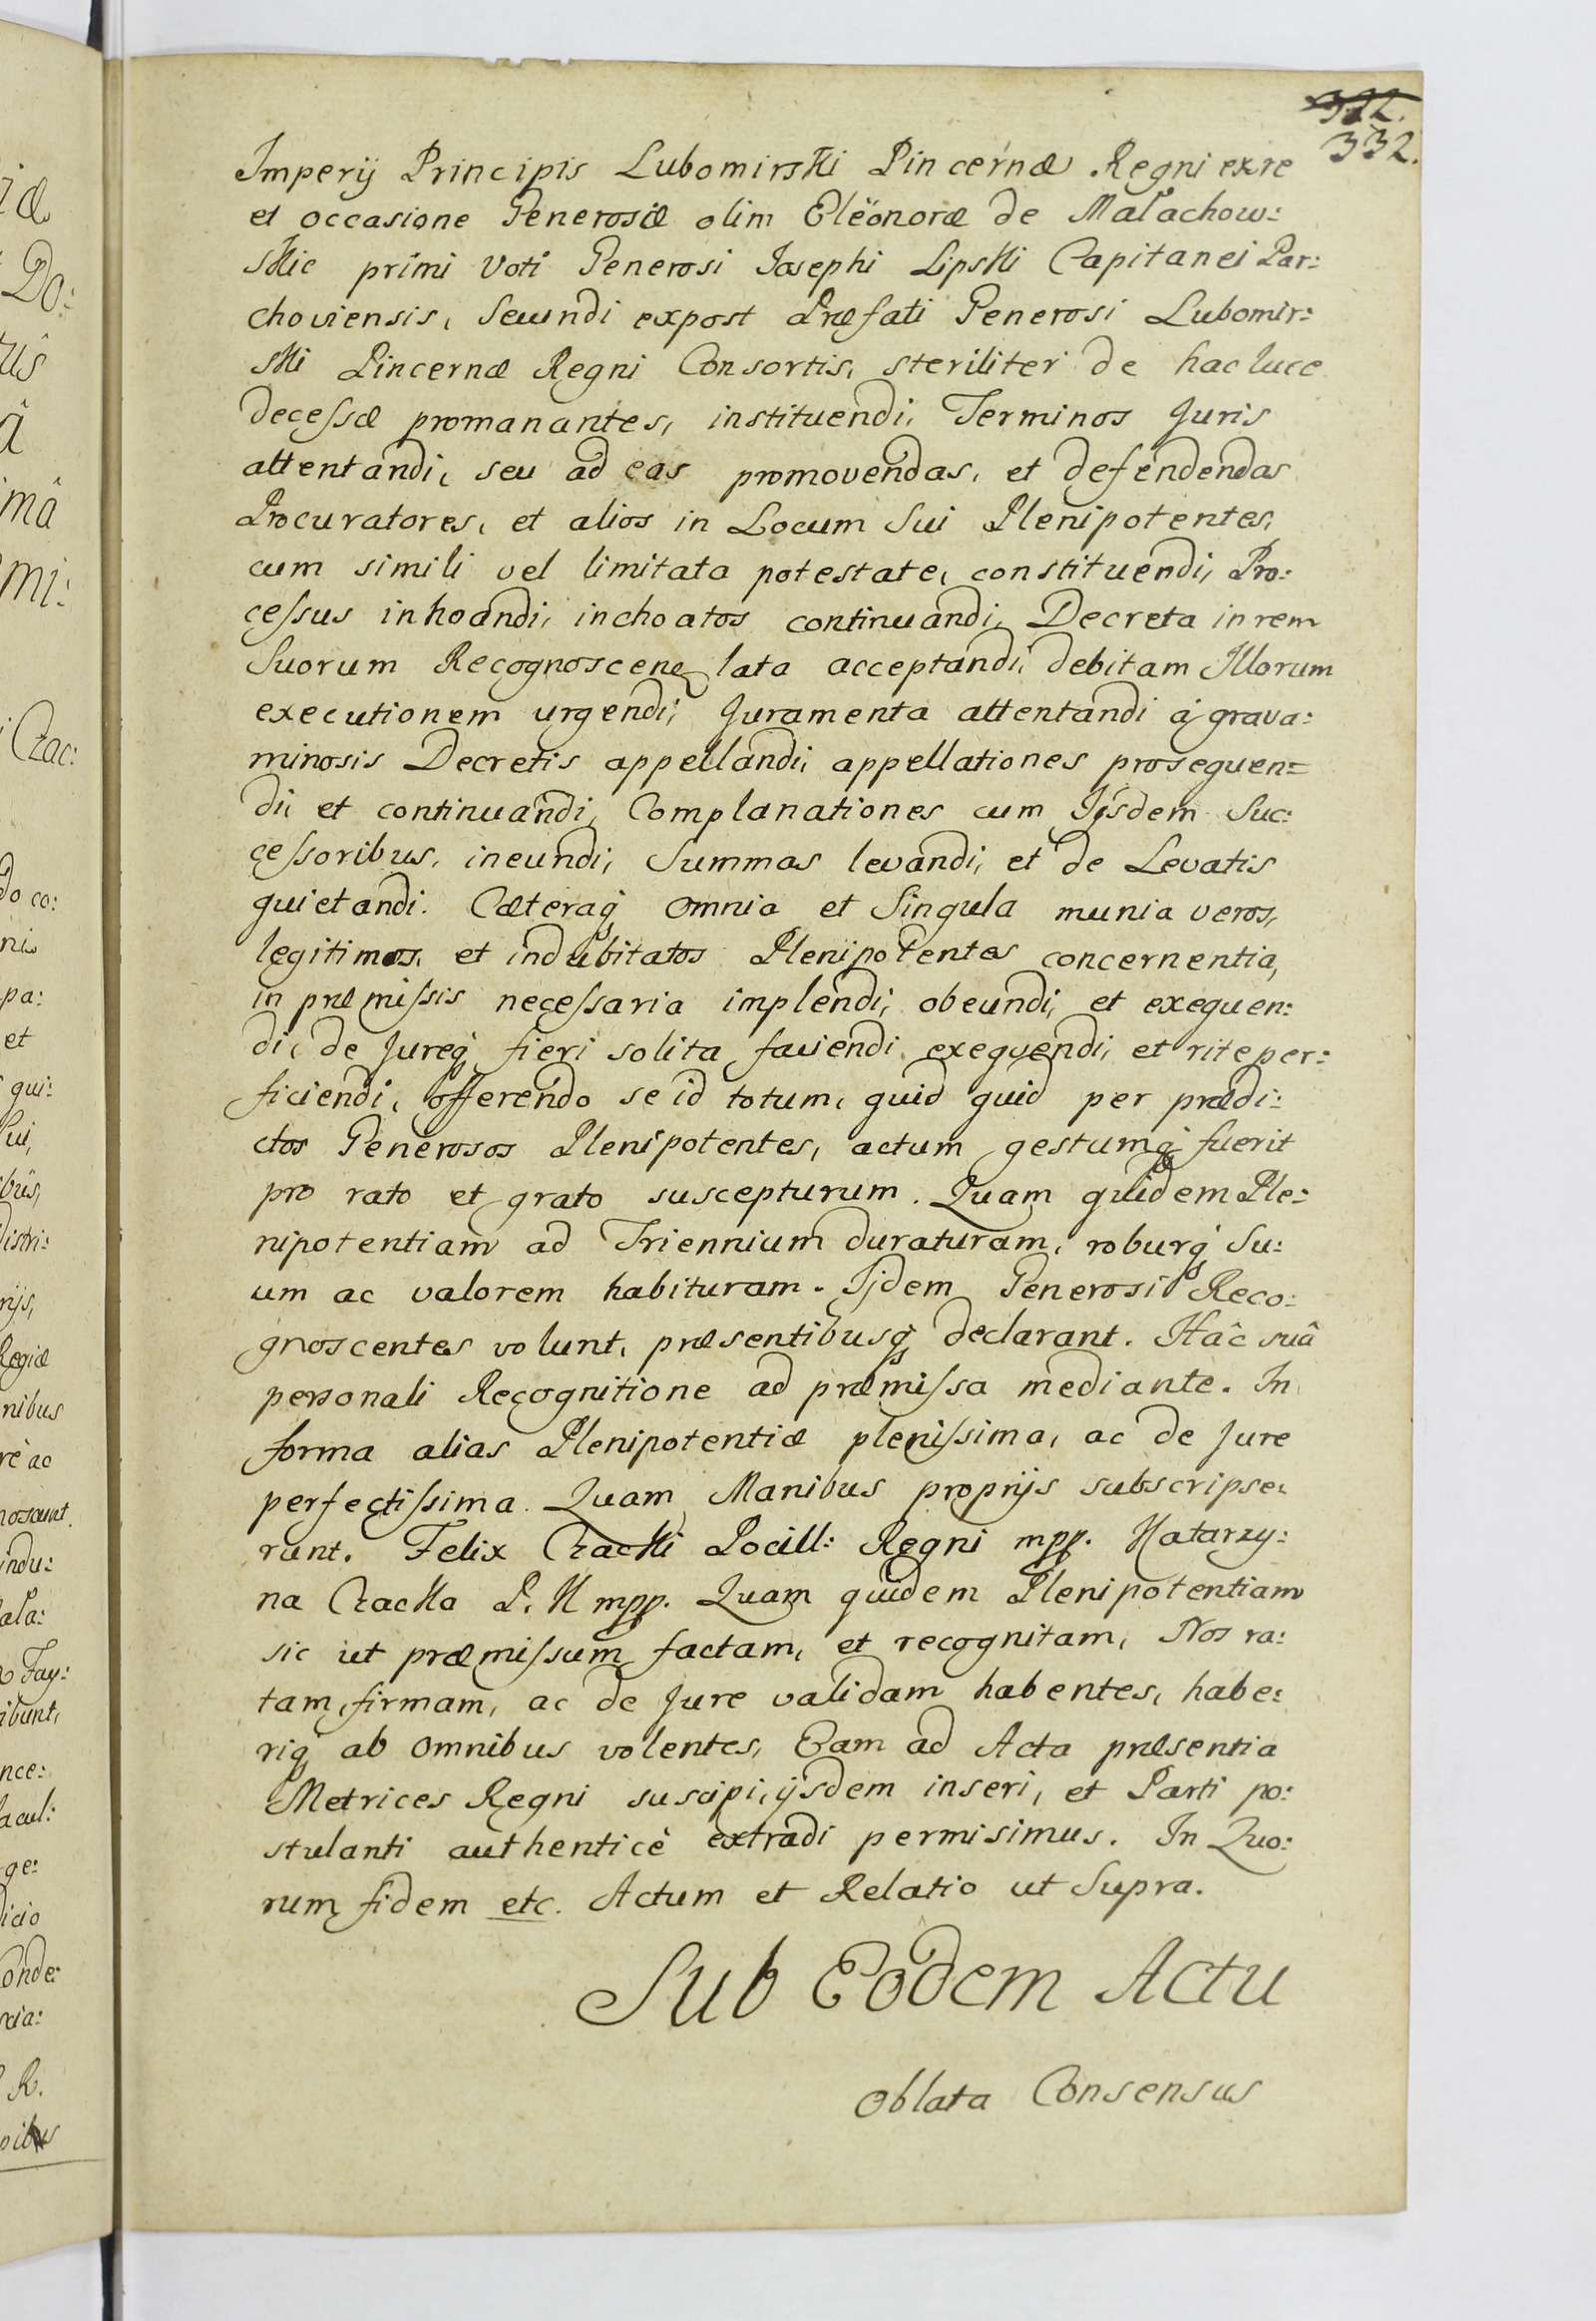 322.
332.
Imperÿ Principis Lubomirski Pincernæ Regni ex re
et occasione Generosæ olim Elëonoræ de Małachow:
skie primi Voti Generosi Josephi Lipski Capitanei Par:
choviensis, Secundi expost Præfati Generosi Lubomir:
ski Pincernæ Regni Consortis, steriliter de hac luce
decessæ promanantes, instituendi, Terminos Juris
attentandi, seu ad eas promovendas, et defendendas
Procuratores, et alios in Locum Sui Plenipotentes,
cum simili vel limitata potestate, constituendi, Pro:
cessus inhoandi, inchoatos continuandi, Decreta in rem
Suorum Recognoscenẹ lata acceptandi, debitam Illorum
executionem urgendi, Juramenta attentandi à grava:
minosis Decretis appellandi, appellationes prosequen=
di, et continuandi, Complanationes cum Iÿsdem Suc:
cessoribus, ineundi, Summas levandi, et de Levatis
quietandi. Cæteraq̀ omnia et Singula munia veros,
legitimos, et indubitatos Plenipotentes concernentia,
in præmissis necessaria implendi, obeundi, et exequen:
di, de Jureq̀ fieri solita faciendi exequendi, et rite per:
ficiendi, offerendo se id totum, quid quid per prædi:
ctos Generosos Plenipotentes, actum gestumq̀ fuerit
pro rato et grato suscepturum. Quam quidem Ple:
nipotentiam ad Triennium duraturam, roburq̀ Su:
um ac valorem habituram. Ijdem Generosi Reco:
gnoscentes volunt, præsentibusq̀ declarant. Hâc suâ
personali Recognitione ad præmissa mediante. In
forma alias Plenipotentiæ plenissima, ac de Jure
perfectissima. Quam Manibus proprÿs subscripse:
runt. Felix Czacki Pocill: Regni mpp. Katarzy:
na Czacka P. K mpp. Quam quidem Plenipotentiam
sic ut præmissum factam, et recognitam, Nos ra:
tam, firmam, ac de Jure validam habentes, habe:
riq̀ ab omnibus volentes, Eam ad Acta præsentia
Metrices Regni suscipi, ÿsdem inseri, et Parti po:
stulanti authenticè extradi permisimus. In Quo:
rum fidem etc. Actum et Relatio ut Supra.
Sub Eodem Actu
Oblata Consensus